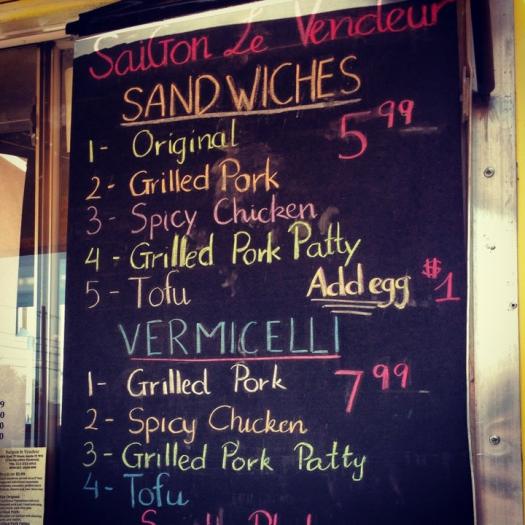 SaiGon Le Vendeur
SANDWICHES
1- Original 5.99
2- Grilled Pork
3- Spicy Chicken
4- Grilled Pork Patty
5- Tofu Add egg $1
VERMICELLI
1- Grilled Pork 7.99
2- Spicy Chicken
3- Grilled Pork Patty
4- Tofu